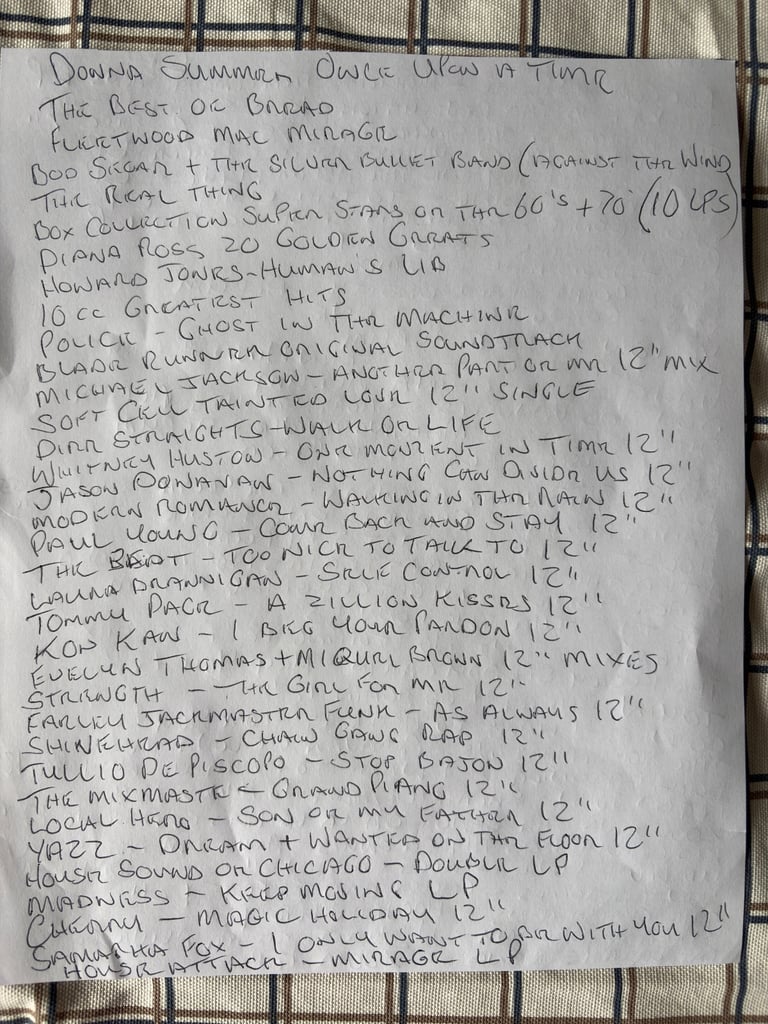 DONNA SUMMER ONCE UPON A TIME
THE BEST OF BREAD
FLEETWOOD MAC MIRAGE
BOD SEGAR + THE SILVER BULLET BAND (AGAINST THE WIND
THE REAL THING
BOX COLLECTION SUPER STARS OF THE 60'S + 70' (10 LPS)
DIANA ROSS 20 GOLDEN GREATS
HOWARD JONES - HUMAN'S LIB
10 CC GREATEST HITS
POLICE - GHOST IN THE MACHINE
BLADE RUNNER ORIGINAL SOUNDTRACK
MICHAEL JACKSON - ANOTHER PART OF ME 12" MIX
SOFT CELL TAINTED LOVE 12" SINGLE
DIRE STRAIGHTS - WALK OF LIFE
WHITNEY HUSTON - ONE MOMENT IN TIME 12"
JASON DONAVAN - NOTHING CAN DIVIDE US 12"
MODERN ROMANCE - WALKING IN THE RAIN 12"
PAUL YOUNG - COME BACK AND STAY 12"
THE BEAT - TOO NICE TO TALK TO 12"
LAURA BRANNIGAN - SELF CONTROL 12"
TOMMY PAGE - A ZILLION KISSES 12"
KON KAN - I BEG YOUR PARDON 12"
EVELYN THOMAS + MIQUEL BROWN 12" MIXES
STRENGTH - THE GIRL FOR ME 12"
FARLEY JACKMASTER FUNK - AS ALWAYS 12"
SHINEHEAD - CHAIN GANG RAP 12"
TULLIO DE PISCOPO - STOP BAJON 12"
THE MIXMASTER - GRAND PIANO 12"
LOCAL HERO - SON OF MY FATHER 12"
YAZZ - DREAM + WANTED ON THE FLOOR 12"
HOUSE SOUND OF CHICAGO - DOUBLE LP
MADNESS - KEEP MOVING LP
CHERRY - MAGIC HOLLIDAY 12"
SAMANTHA FOX - I ONLY WANT TO BE WITH YOU 12"
HOUSE ATTACK - MIRAGE LP